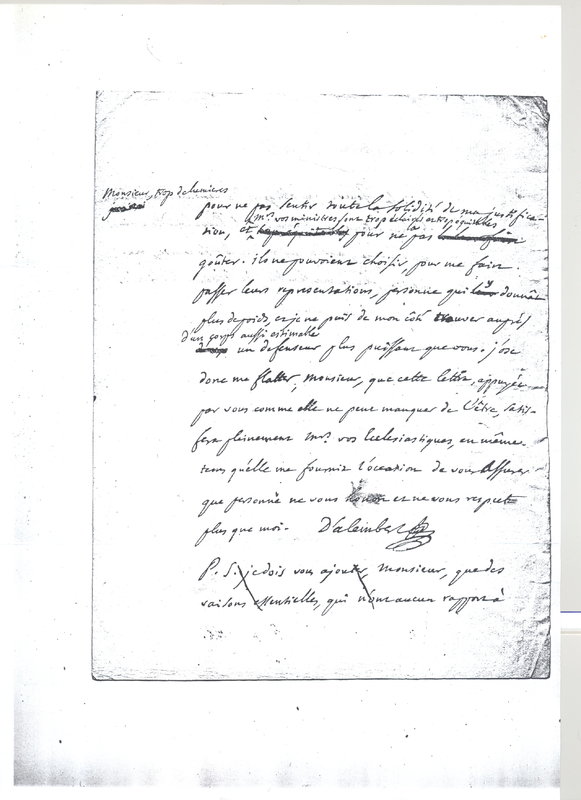 Monsieur, trop de lumieres
pour ne pas sentir toute la solidité de ma justifica-
mrs. vos ministres sont trop éclairés et trop équitables
tion, et pour ne la pas
goûter. ils ne pouvoient choisir, pour me faire
passer leurs representations, personne qui y donnât
plus de poids, et je ne puis de mon côté trouver auprès
d'un corps aussi estimable
un defenseur plus puissant que vous. j'ose
donc me flatter, Monsieur, que cette lettre, appuyée
par vous comme elle ne peut manquer de l'être, satis-
fera pleinement mrs. vos Ecclesiastiques, en même
tems qu'elle me fournit l'occasion de vous assurer
que personne ne vous honore et ne vous respecte
plus que moi. D'alembert
P. S. je dois vous ajouter, Monsieur, que des
raisons essentielles, qui n'ont aucun rapport à